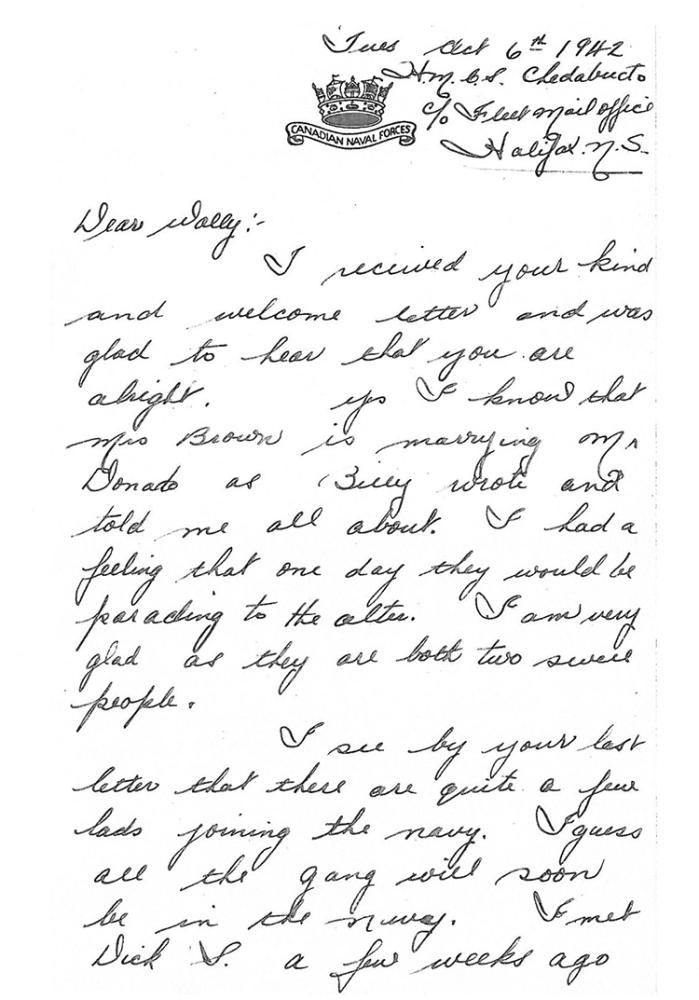 Tues Oct 6th 1942
H.M.C.S. Chedabucto
c/o Fleet Mail Office
Halifax. N.S.
CANADIAN NAVAL FORCES
Dear Wally:-
I received your kind
and welcome letter and was
glad to hear that you are
alright. yes I know that
Mrs Brown is marrying Mr
Donato as Billy wrote and
told me all about. I had a
feeling that one day they would be
parading to the alter. I am very
glad as they are both two swell
people.
I see by your last
letter that there are quite a few
lads joining the navy. I guess
all the gang will soon
be in the navy. I met
Dick S. a few weeks ago